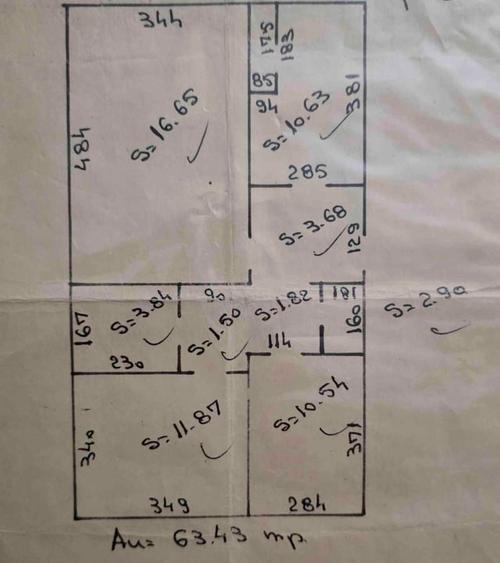 344
175
183
85
94
381
S=16.65
S=10.63
484
285
S=3.68
129
S=3.84
90
S=1.82
181
S=2.90
167
S=1.50
160
230
114
S=11.87
S=10.54
340
371
349
284
Au= 63.43 mp.